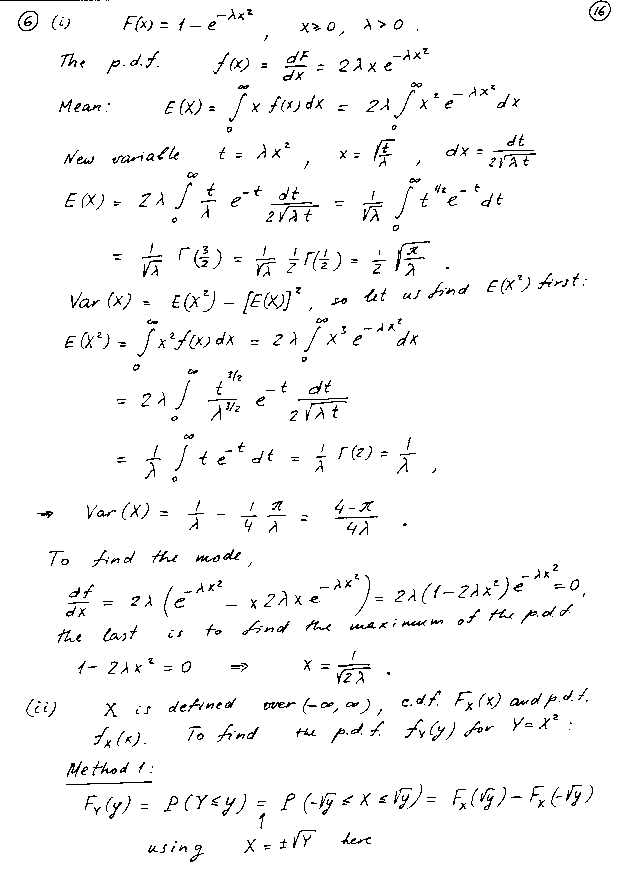 ⑥ (i) F(x) = 1 − e^{−λx²}, x ≥ 0, λ > 0. ⑯
The p.d.f. f(x) = dF/dx = 2λx e^{−λx²}
Mean: E(X) = ∫₀^∞ x f(x) dx = 2λ ∫₀^∞ x² e^{−λx²} dx
New variable t = λx², x = √(t/λ), dx = dt/(2√(λt))
E(X) = 2λ ∫₀^∞ (t/λ) e^{−t} dt/(2√(λt)) = (1/√λ) ∫₀^∞ t^{1/2} e^{−t} dt
= (1/√λ) Γ(3/2) = (1/√λ) (1/2) Γ(1/2) = (1/2) √(π/λ).
Var(X) = E(X²) − [E(X)]², so let us find E(X²) first:
E(X²) = ∫₀^∞ x² f(x) dx = 2λ ∫₀^∞ x³ e^{−λx²} dx
= 2λ ∫₀^∞ (t^{3/2}/λ^{3/2}) e^{−t} dt/(2√(λt))
= (1/λ) ∫₀^∞ t e^{−t} dt = (1/λ) Γ(2) = 1/λ,
⇒ Var(X) = 1/λ − (1/4)(π/λ) = (4−π)/(4λ).
To find the mode,
df/dx = 2λ(e^{−λx²} − x2λx e^{−λx²}) = 2λ(1−2λx²)e^{−λx²} = 0,
the last is to find the maximum of the p.d.f
1 − 2λx² = 0 ⇒ x = 1/√(2λ).
(ii) X is defined over (−∞, ∞), c.d.f. F_X(x) and p.d.f.
f_X(x). To find the p.d.f. f_Y(y) for Y = X²:
Method 1:
F_Y(y) = P(Y ≤ y) = P(−√y ≤ X ≤ √y) = F_X(√y) − F_X(−√y)
↑
using X = ±√Y here